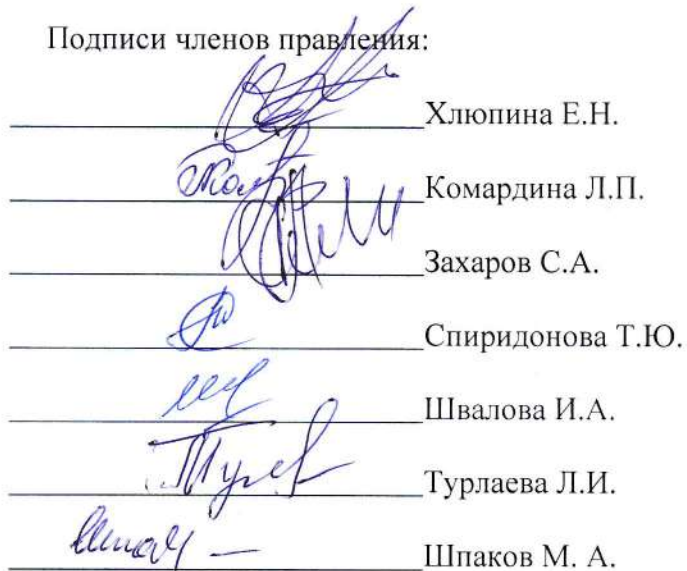 Подписи членов правления:
Хлюпина Е.Н.
Комардина Л.П.
Захаров С.А.
Спиридонова Т.Ю.
Швалова И.А.
Турлаева Л.И.
Шпаков М. А.